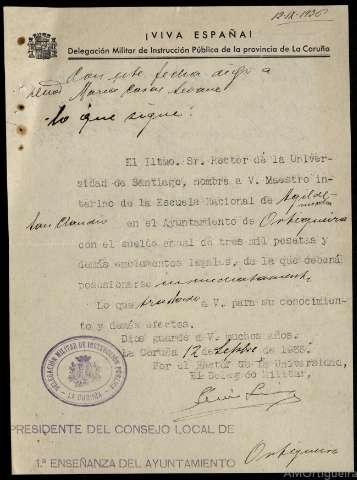 12-IX-1936
¡VIVA ESPAÑA!
Delegación Militar de Instrucción Pública de la provincia de La Coruña
Con esta fecha digo a
Maria Casas
lo que sigue:
El Iltmo. Sr. Rector de la Univer-
sidad de Santiago, nombra a V. Maestro in-
terino de la Escuela Nacional de
San Claudio en el Ayuntamiento de Ortigueira
con el sueldo anual de tres mil pesetas y
demás emolumentos legales, de la que deberá
posesionarse inmediatamente
Lo que traslado a V. para su conocimiento
y demás efectos.
Dios guarde a V. muchos años.
La Coruña 12 de Sepbre de 1936.
Por el Rector de la Universidad,
El Delegado Militar,
DELEGACIÓN MILITAR DE INSTRUCCIÓN PÚBLICA
LA CORUÑA
PRESIDENTE DEL CONSEJO LOCAL DE
1.ª ENSEÑANZA DEL AYUNTAMIENTO Ortigueira
AMOrtigueira